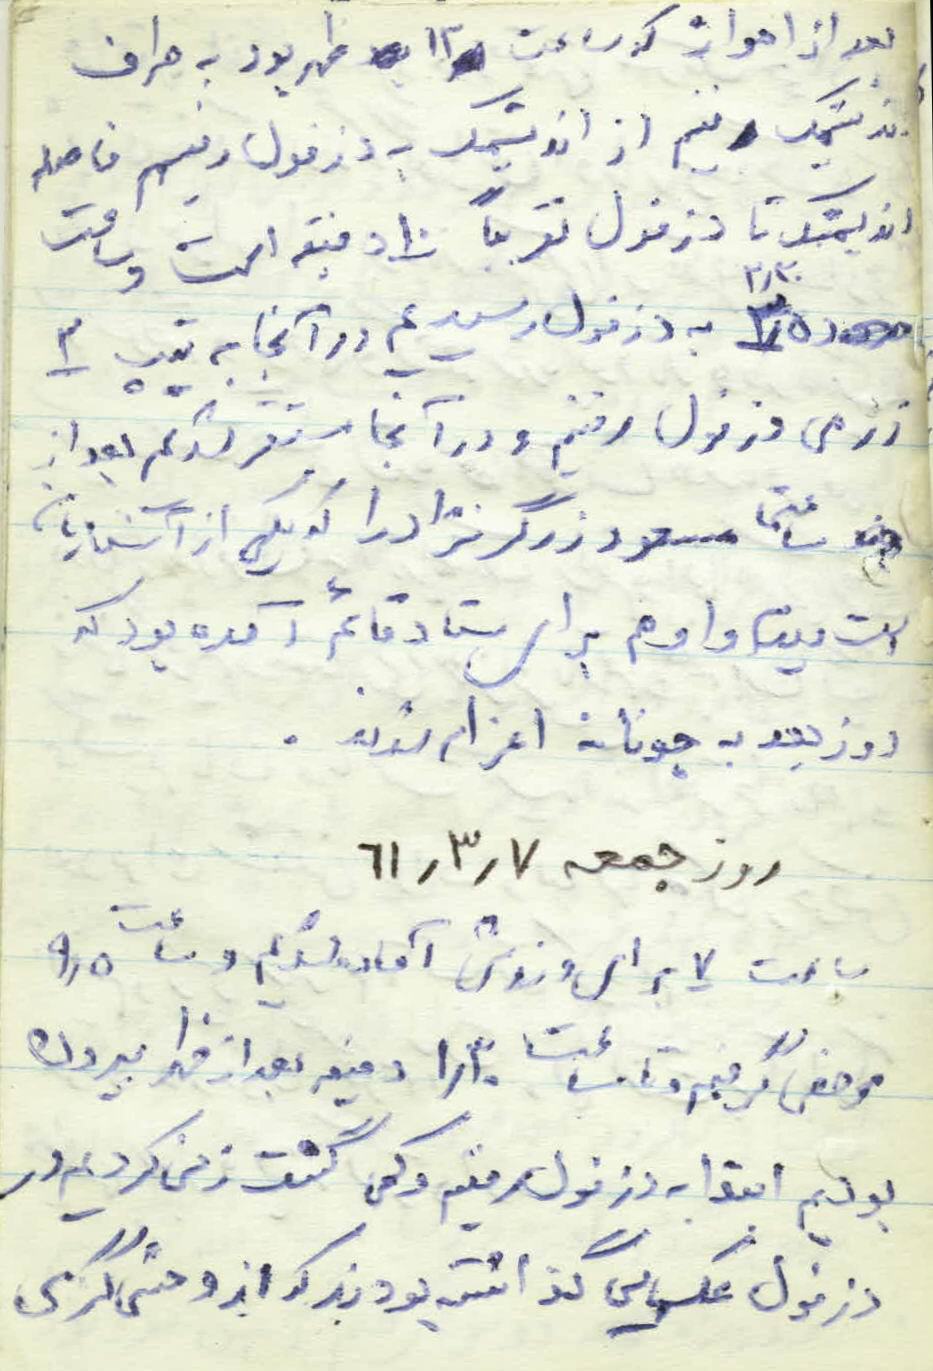 بعد از اهواز که ساعت ۱۲ ظهر بود به طرف
اندیمشک رفتیم از اندیمشک به دزفول رفتیم فاصله
اندیمشک تا دزفول تقریباً ۱۰ دقیقه است و ساعت
۳٫۳۰
به دزفول رسیدیم در آنجا به تیپ ۳
زرهی دزفول رفتیم و در آنجا مستقر شدیم بعد از
چند ساعت مسعود زرگر نژاد را که یکی از آشنایان
است پیدا کردم برای ستاد قائم آمده بود که
روز بعد به جوفانه اعزام شدند .
روز جمعه ۶۱٫۳٫۷
ساعت ۷ برای ورزش آماده شدیم و ساعت ۹٫۵
مرخصی گرفتیم و تا ساعت ۱٫۳۰ دقیقه بعد از ظهر بیرون
بودیم ابتدا به دزفول رفتیم و کمی گشت زنی کردیم در
دزفول عکسهایی گذاشته بودند که از وحشی گری